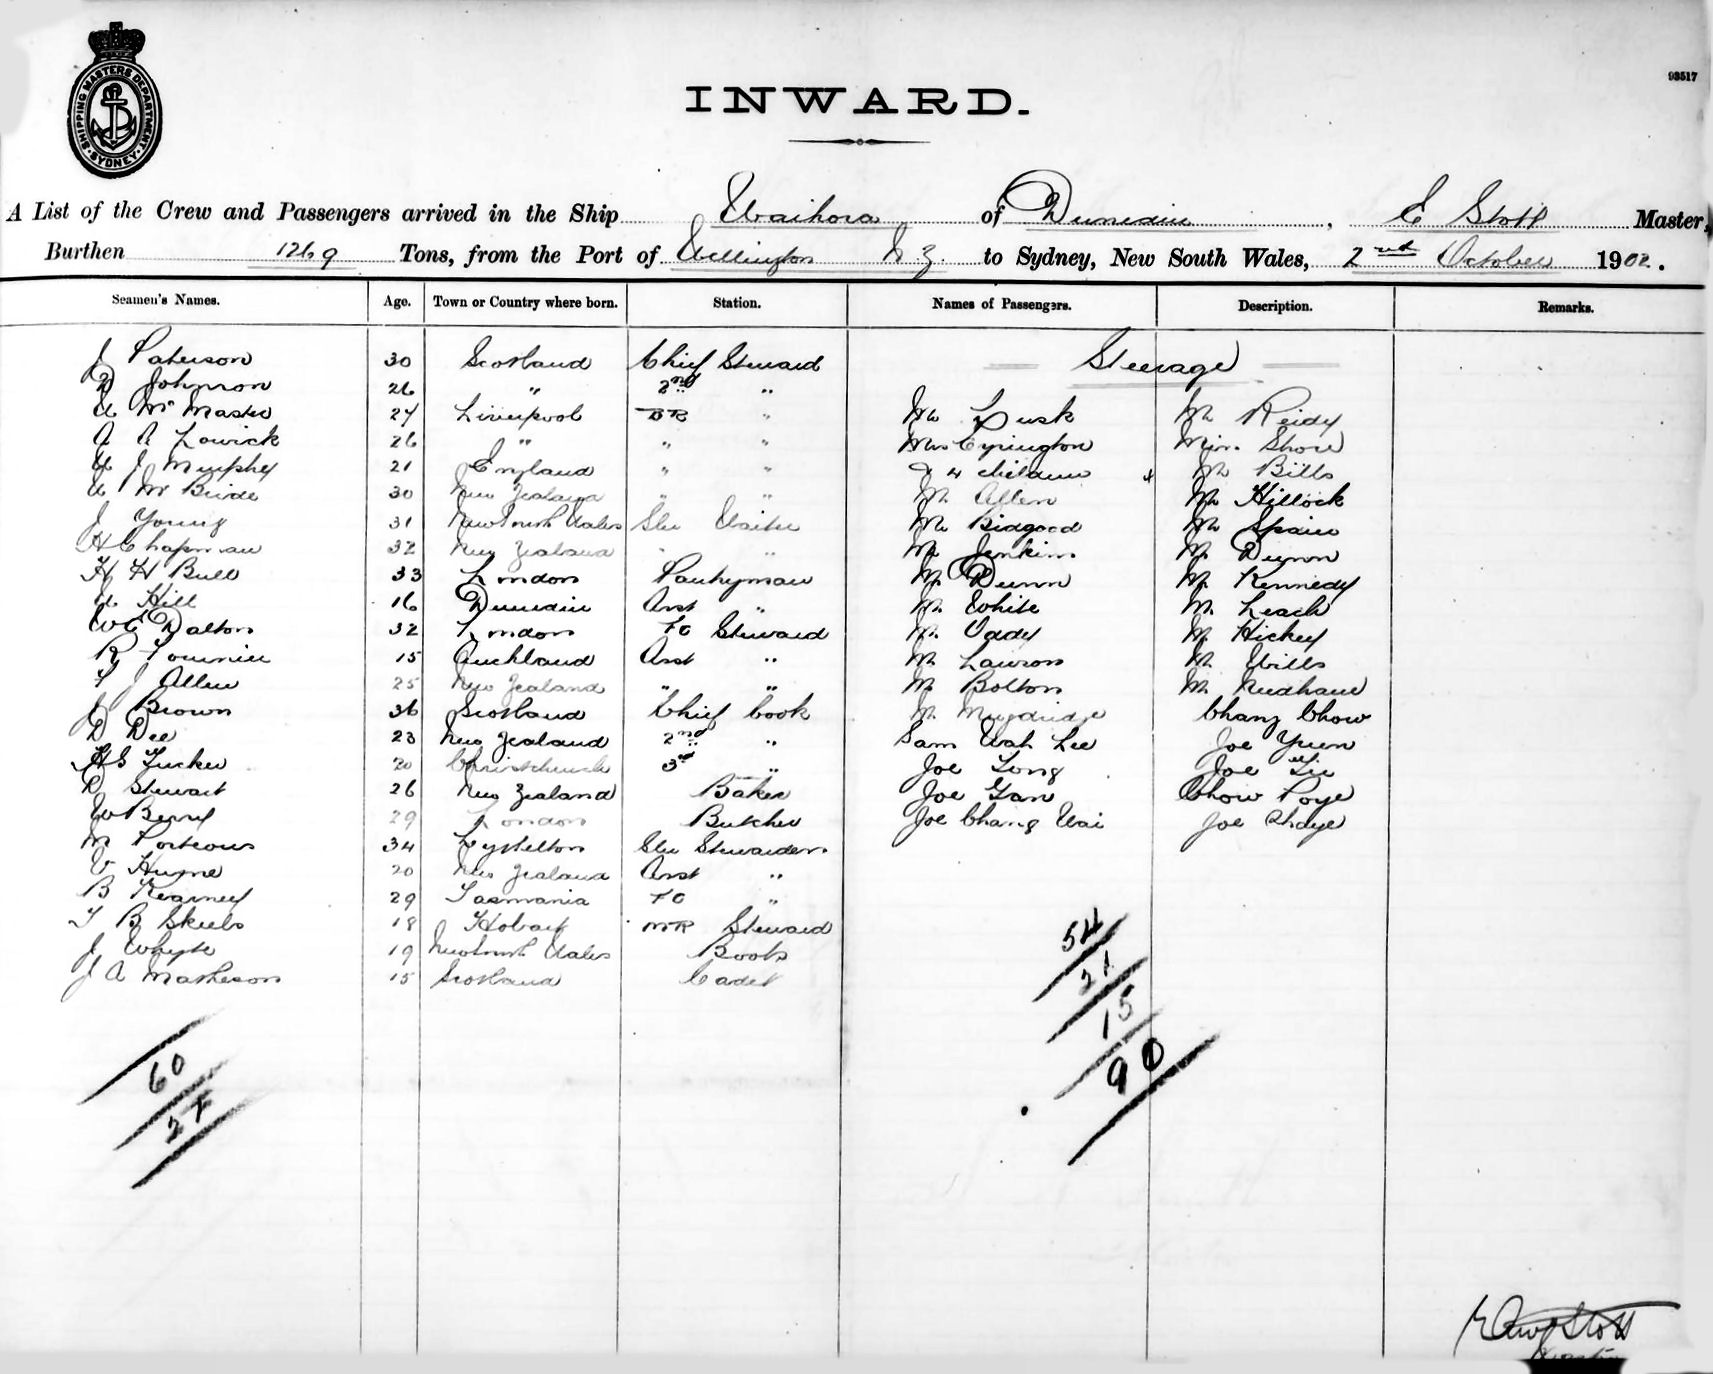 93517
SHIPPING MASTERS DEPARTMENT · SYDNEY ·
INWARD.
A List of the Crew and Passengers arrived in the Ship Waihora of Dunedin, E Stott Master,
Burthen 1269 Tons, from the Port of Wellington N Z. to Sydney, New South Wales, 2nd October 1902.
Seamen's Names. Age. Town or Country where born. Station. Names of Passengers. Description. Remarks.
Steerage
J Paterson 30 Scotland Chief Steward
D Johnson 26 " 2nd "
Mc Master 24 Liverpool BR " Mr Lusk Mr Reidy
A A Lowick 26 " " " Mrs Miss Shore
J Murphy 21 England " " & 4 children Mr Bills
Mc Bride 30 New Zealand " " Mr Allen Mr Hillock
J Young 31 New South Wales Waiter Mr Bidgood Mr Spain
H Chapman 32 New Zealand " " Mr Jenkins Mr Dunn
H H Bull 33 London Pantryman Mr Dunn Mr Kennedy
Hill 16 Dunedin Asst " Mr White Mr Leach
W C Dalton 32 London FC Steward Mr Oddy Mr Hickey
R 15 Auckland Asst " Mr Lawson Mr Wills
F J Allen 25 New Zealand " " Mr Bolton Mr Nedham
J Brown 36 Scotland Chief Cook Mr Chang Chow
D Dee 23 New Zealand 2nd " Sam Wah Lee Joe Yuen
H G Tucker 20 Christchurch 3rd " Joe Tong Joe
D Stewart 26 New Zealand Baker Joe Gan Chow Poye
W Berry 29 London Butcher Joe Chang Wai Joe
M Porteous 34 Lyttelton Stewardess
V 20 New Zealand Asst "
B Kearney 29 Tasmania FC "
T B Skeels 18 Hobart MR Steward
J Whyte 19 New South Wales Boots
J A Matheson 15 Scotland Cadet
54
21
15
90
60
27
Stott